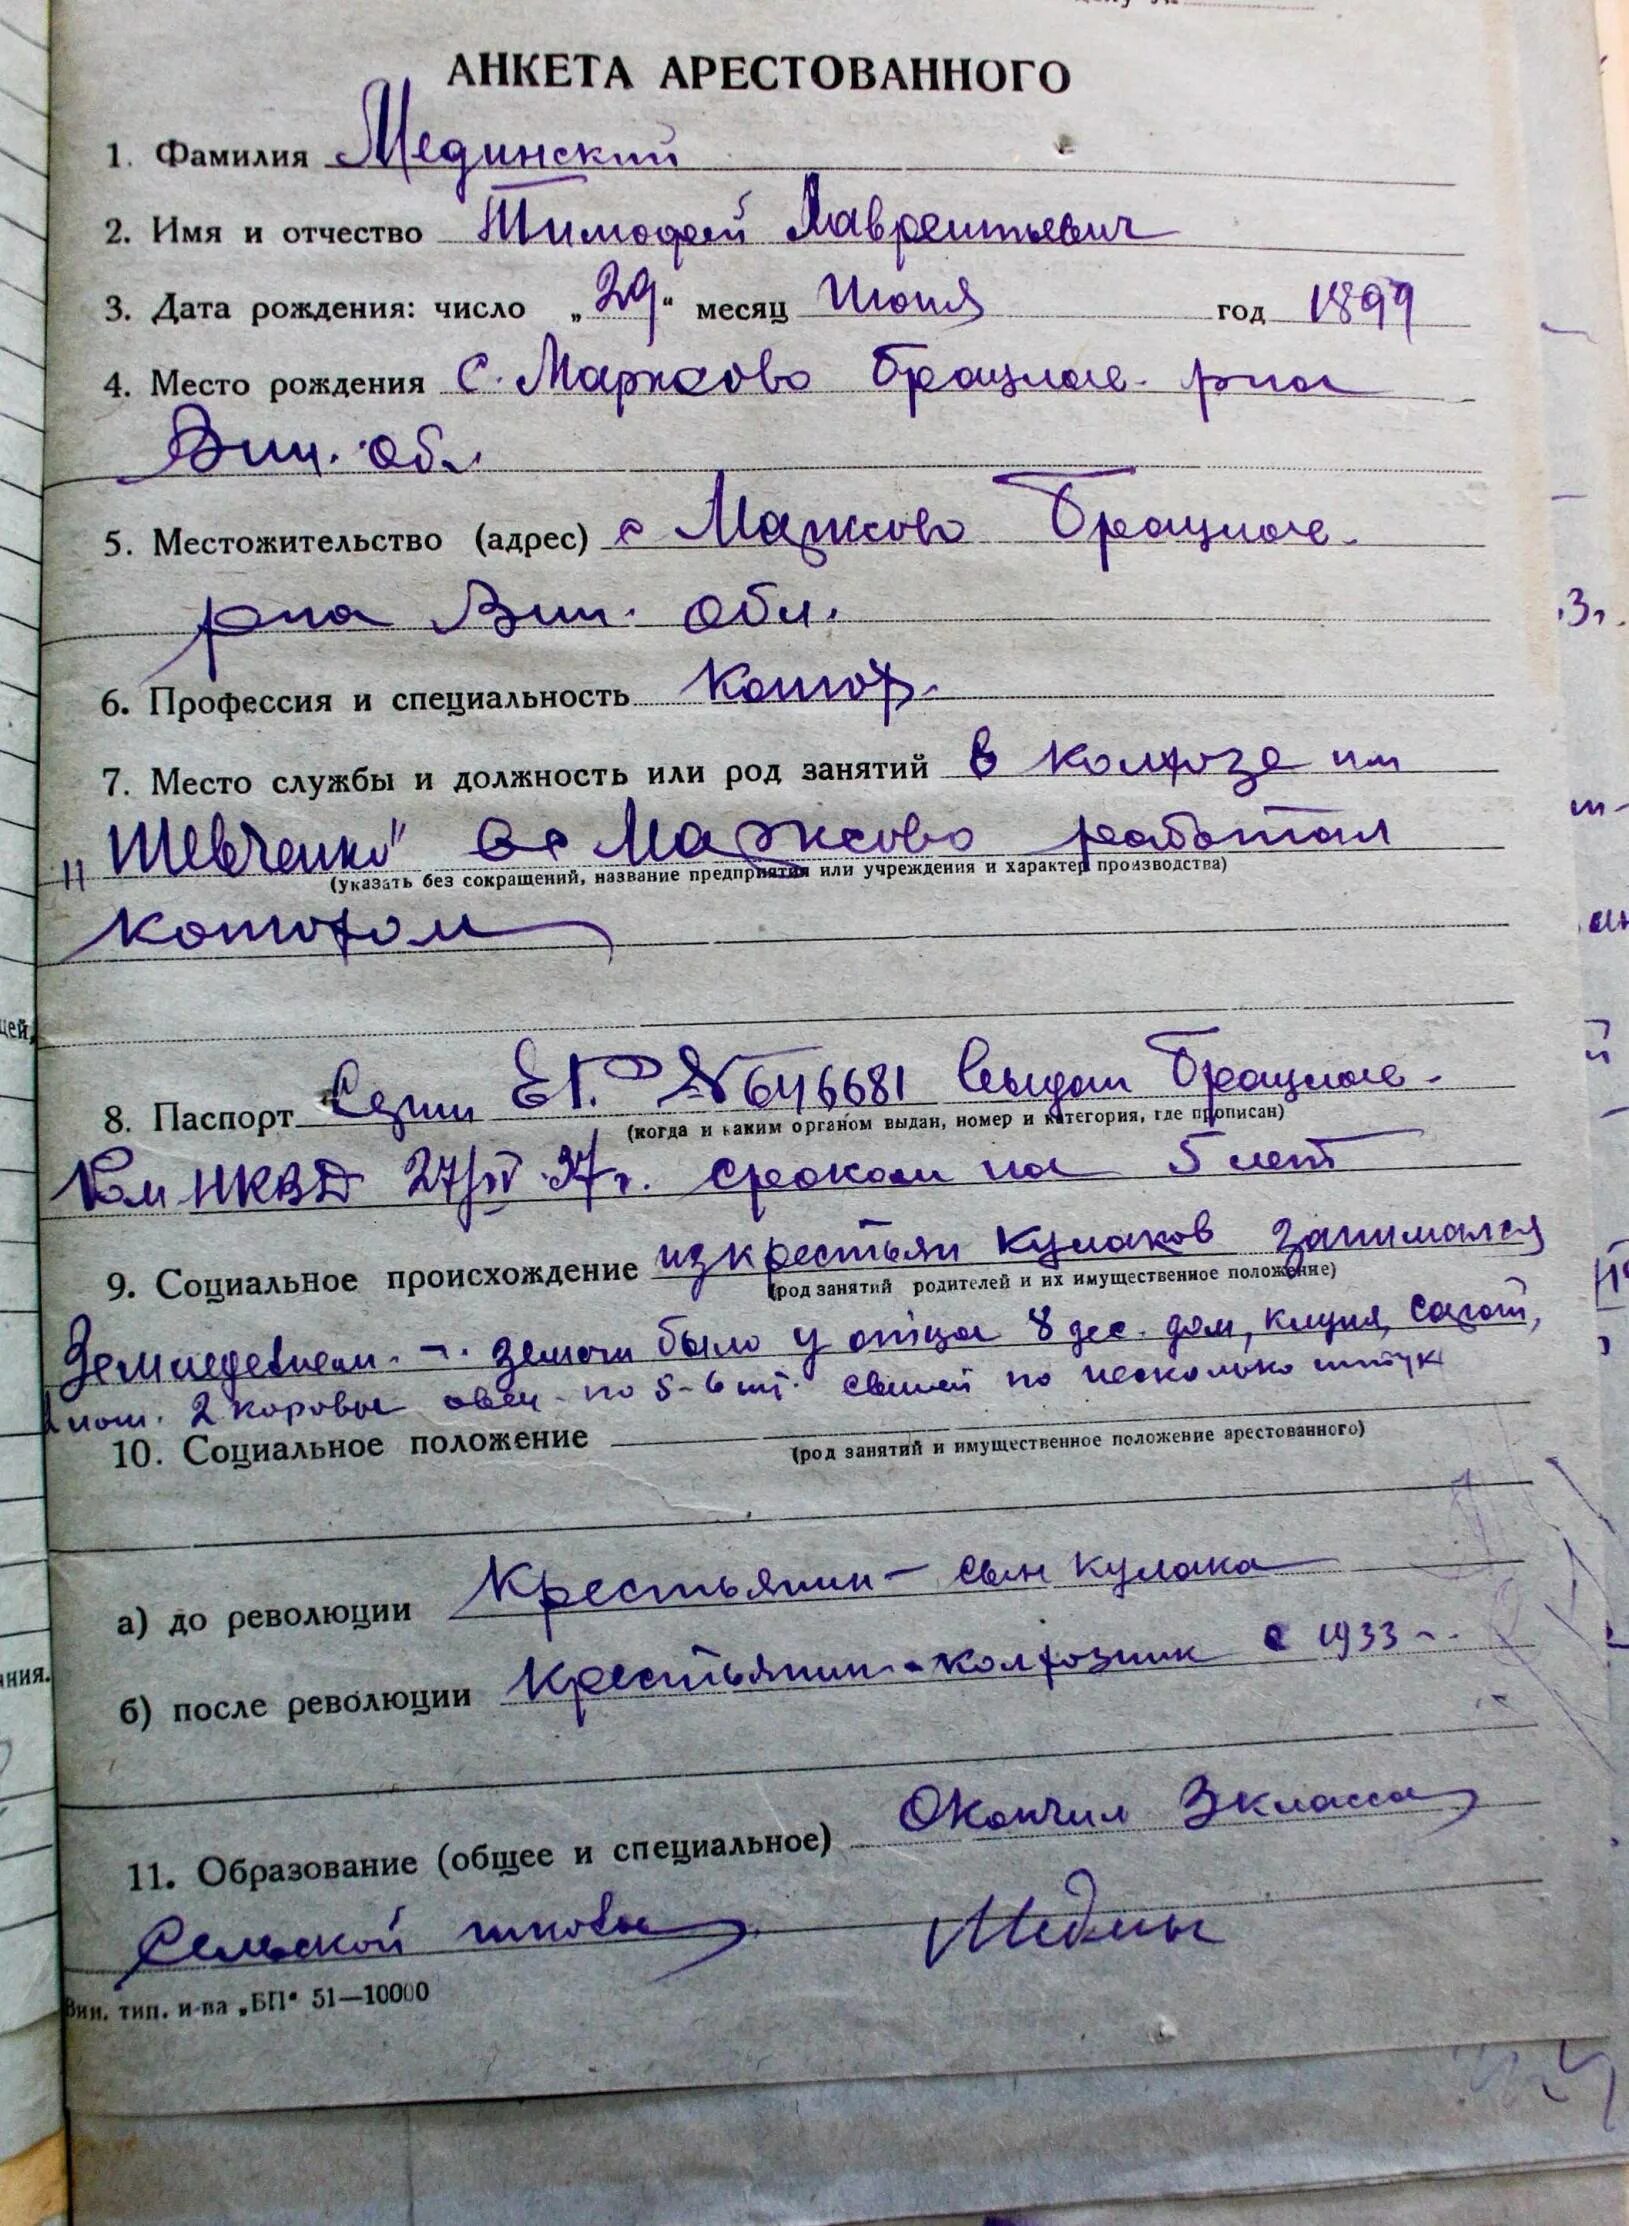 АНКЕТА АРЕСТОВАННОГО
1. Фамилия Мединский
2. Имя и отчество Тимофей Лаврентьевич
3. Дата рождения: число „29“ месяц Июня год 1899
4. Место рождения с. Марксово Брацлав. р-на
Вин. Обл.
5. Местожительство (адрес) с Марксово Брацлав.
р-на Вин. Обл.
6. Профессия и специальность
7. Место службы и должность или род занятий в колхозе им
"Шевченко" в с Марксово работал
(указать без сокращений, название предприятия или учреждения и характер производства)
8. Паспорт Серии № 646681 выдан Брацлав.
(когда и каким органом выдан, номер и категория, где прописан)
НКВД 27/IV 37 г. сроком на 5 лет
9. Социальное происхождение из крестьян кулаков занимался
(род занятий родителей и их имущественное положение)
Земледелием. земли было у отца 8 дес. дом, клуня, сарай,
2 коровы овец по 5-6 шт. свиней по несколько штук
10. Социальное положение
(род занятий и имущественное положение арестованного)
а) до революции Крестьянин – сын кулака
б) после революции Крестьянин-колхозник с 1933
11. Образование (общее и специальное) Окончил 3 класса
Сельской школы
Вин. тип. и-ва „БП“ 51—10000